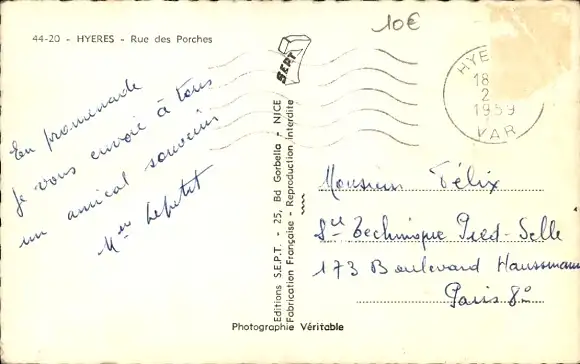 44-20 - HYERES - Rue des Porches
10€
SEPT
HYE
18
2
1959
VAR
En promenade
je vous envoie à tous
un amical souvenir
Lepetit
Editions S.E.P.T. - 25, Bd Gorbella - NICE
Fabrication Française - Reproduction Interdite
Monsieur Félix
Sté Technique Pied-Selle
173 Boulevard Haussmann
Paris 8e
Photographie Véritable